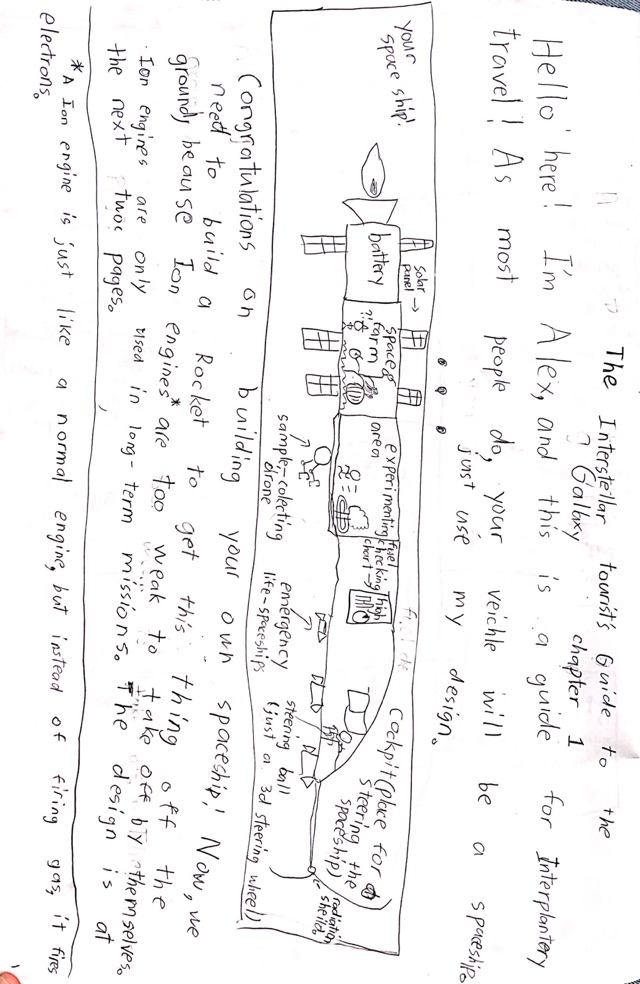 The Interstellar tourist's Guide to the
Galaxy
chapter 1
Hello here! I'm Alex, and this is a guide for Interplantery
travel! As most people do, your veichle will be a spaceship.
just use my design.
your
space ship!
battery
solar
panel →
space
farm
experimenting
area
fuel
checking
chart →
high
cockpit (place for
steering the
spaceship)
sample-colecting
drone
emergency
life-spaceships
steering ball
(just a 3d steering wheel)
radiation
sheild
Congratulations on building your own spaceship! Now, we
need to build a Rocket to get this thing off the
ground, beause Ion engines* are too weak to take off by themselves.
Ion engines are only used in long-term missions. The design is at
the next two pages.
*A Ion engine is just like a normal engine, but instead of firing gas, it fires
electrons.